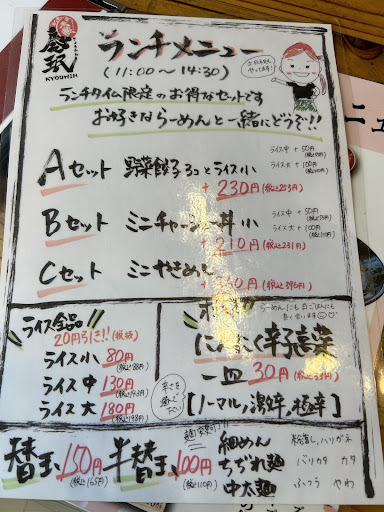 慶珉
KYOUMIN
ランチメニュー
(11:00～14:30)
土日祝も
やってます!
ランチタイム限定のお得なセットです
お好きならーめんと一緒にどうぞ!!
Aセット 野菜餃子3コとライス小
+230円(税込253円)
ライス中+50円
ライス大+100円
Bセット ミニチャーシュー丼小
+210円(税込231円)
ライス中+50円
ライス大+100円
Cセット ミニやきめし
+360円(税込396円)
ライス全品
20円引き!!(税抜)
ライス小 80円
(税込88円)
ライス中 130円
(税込143円)
ライス大 180円
(税込198円)
らーめんにも白ごはんにも
良く合います
にんにく辛子高菜
一皿30円(税込33円)
[ノーマル,激辛,極辛]
辛さを
選んで
下さい
替玉150円
(税込165円)
半替玉100円
(税込110円)
細めん
ちぢれ麺
中太麺
粉落し,ハリガネ
バリカタ カタ
ふつう やわ